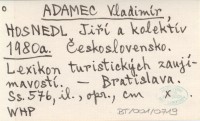 ADAMEC Vladimír,
HOSNEDL Jiří a kolektív
1980a. Československo.
Lexikon turistických zaují-
mavostí. — Bratislava.
Ss. 576, il., opr., cm x
WHP BT/001/0219